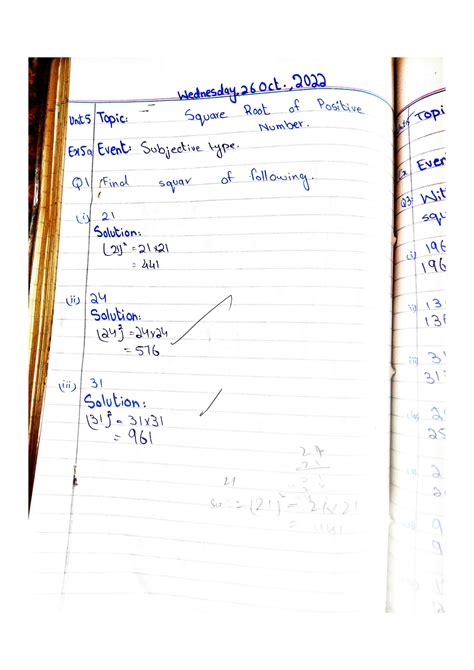 Wednesday, 26 Oct., 2022
Unit 5 Topic: Square Root of Positive
Number.
Ex5a Event: Subjective type.
Q1 Find squar of following.
(i) 21
Solution:
(21)² = 21x21
= 441
(ii) 24
Solution:
(24)² = 24x24
= 576
(iii) 31
Solution:
(31)² = 31x31
= 961
24
21
21
(21)² = 21x21
= 441
Topi
Even
Q3: Wit
squ
(i) 196
196
(ii) 13
31